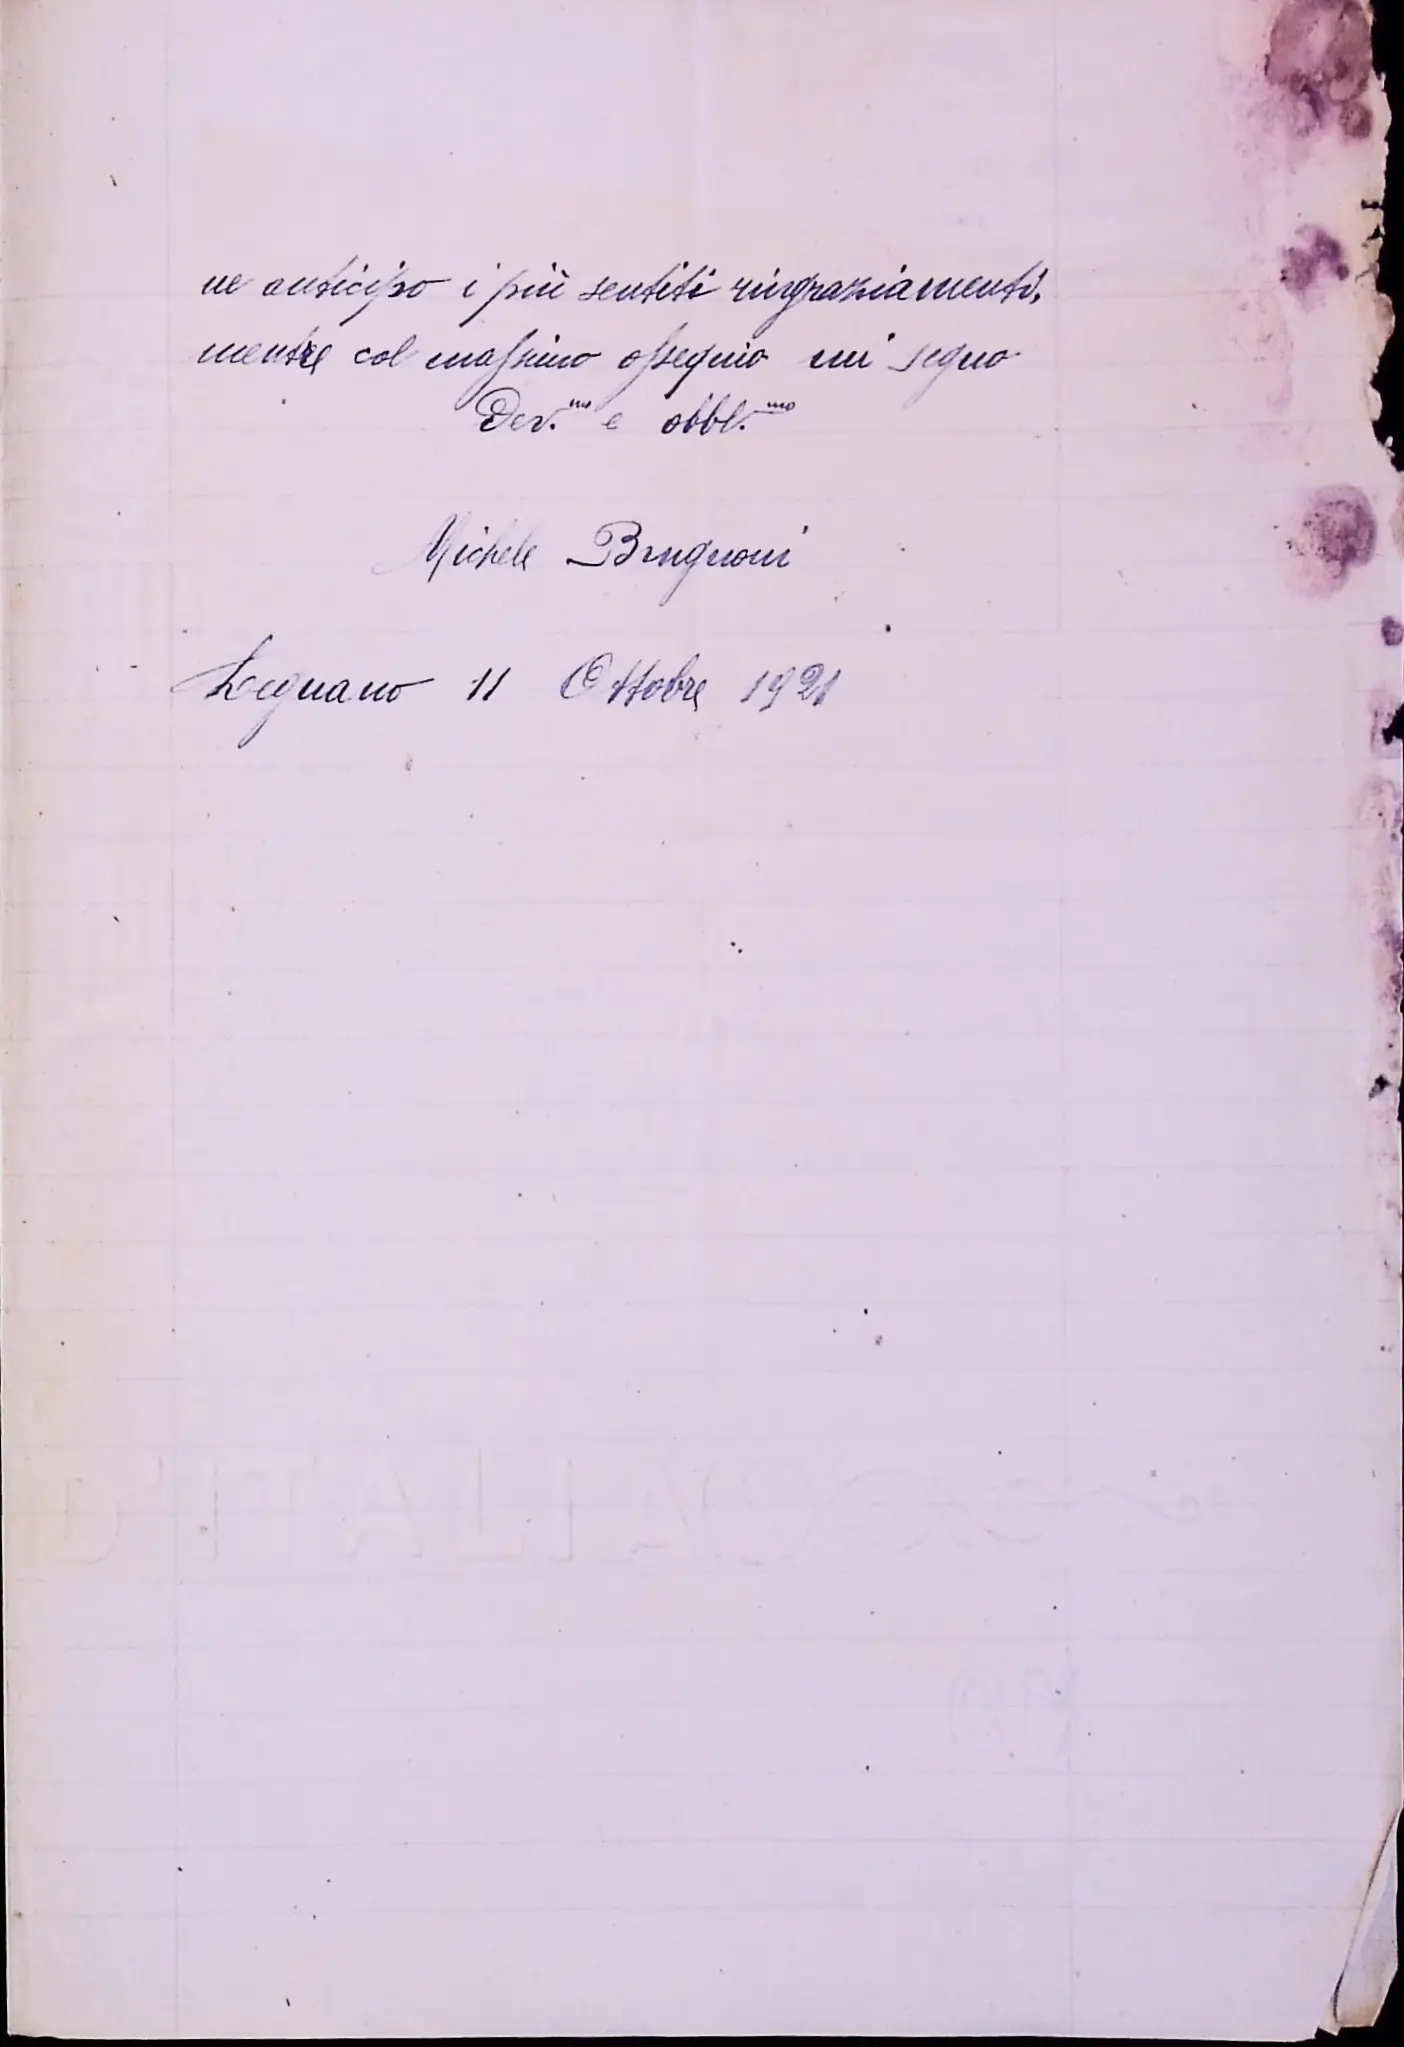 ne anticipo i più sentiti ringraziamenti,
mentre col massimo ossequio mi segno
Dev.mo e obbl.mo
Michele Brugnoni
Legnano 11 Ottobre 1921